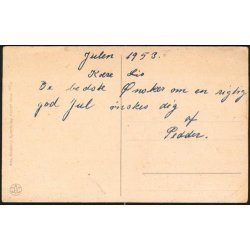 Julen 1953.
Kære Lis
De bedste Ønsker om en rigtig
god Jul ønskes dig
af
Pedder.